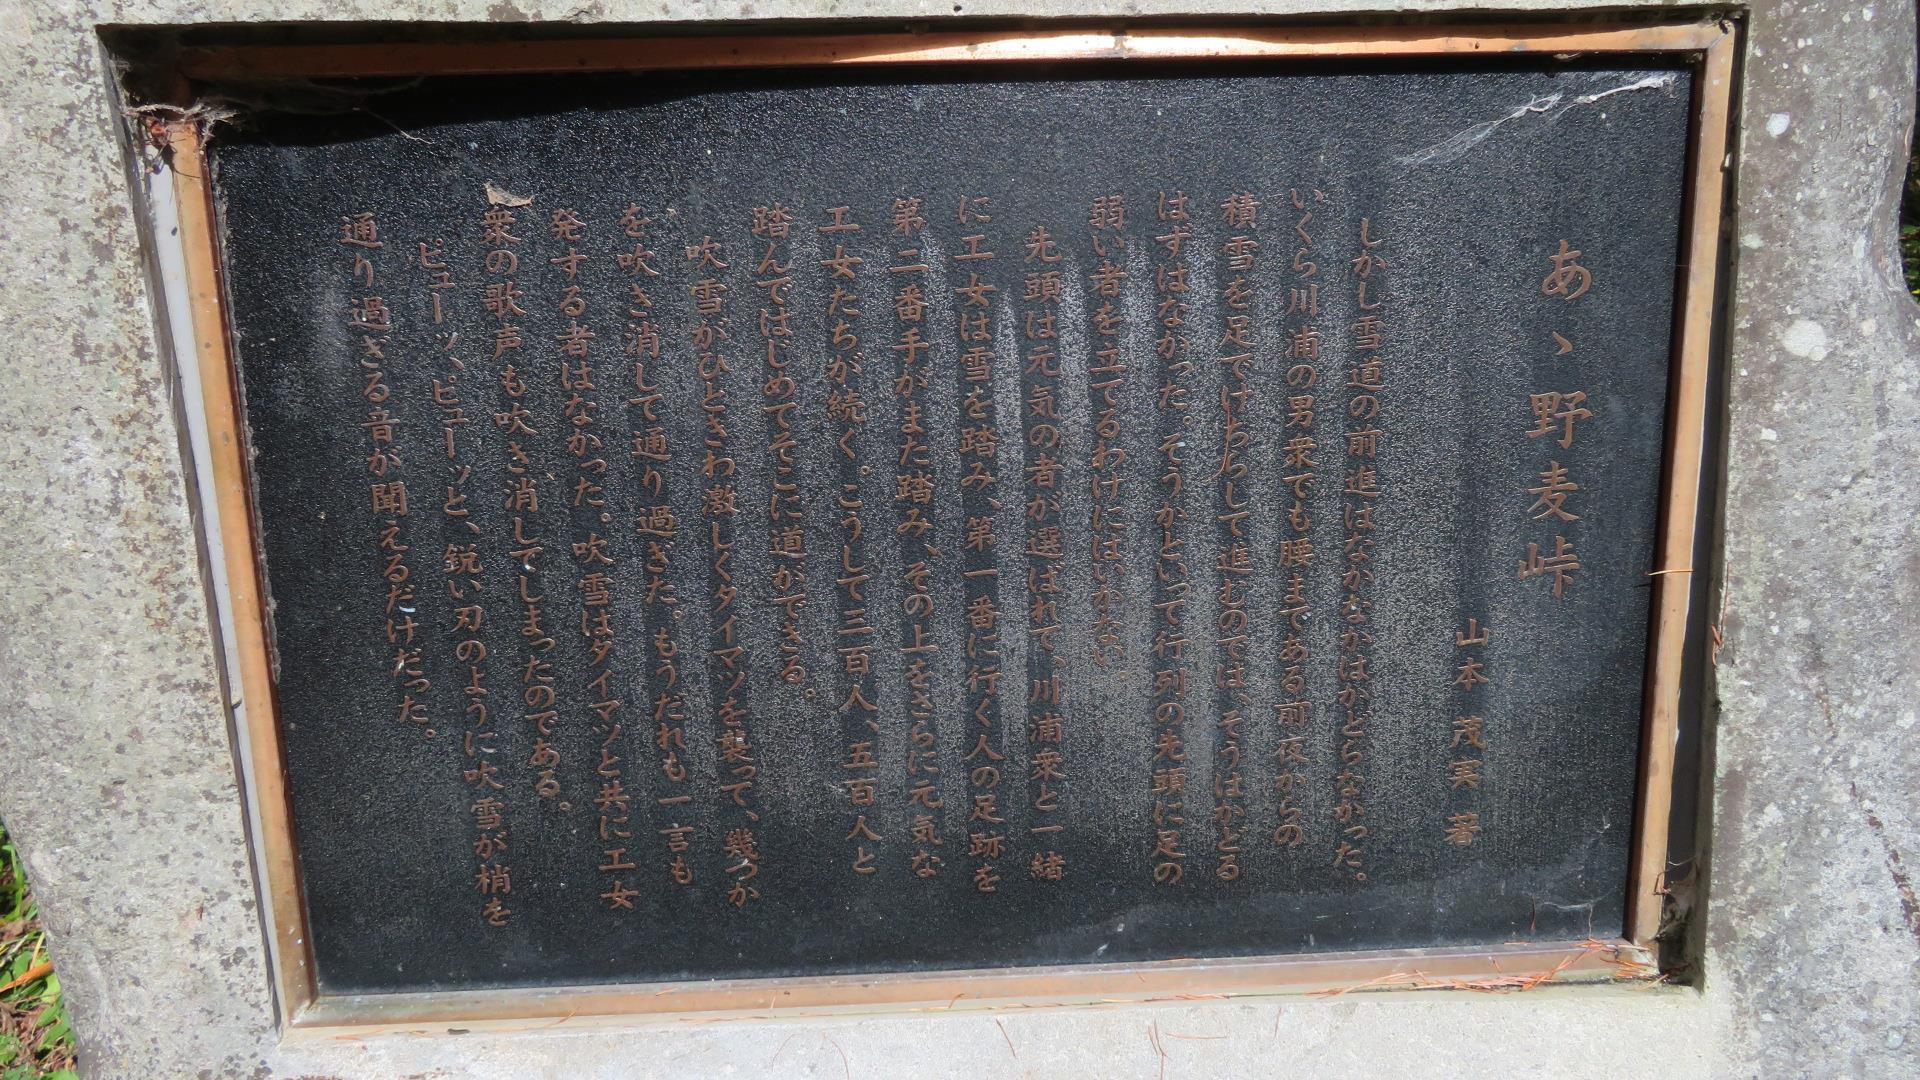 あゝ野麦峠
山本 茂実 著
しかし雪道の前進はなかなかはかどらなかった。
いくら川浦の男衆でも腰まである前夜からの
積雪を足でけちらして進むのでは、そうはかどる
はずはなかった。そうかといって行列の先頭に足の
弱い者を立てるわけにはいかない。
先頭は元気の者が選ばれて、川浦衆と一緒
に工女は雪を踏み、第一番に行く人の足跡を
第二番手がまた踏み、その上をさらに元気な
工女たちが続く。こうして三百人、五百人と
踏んではじめてそこに道ができる。
吹雪がひときわ激しくタイマツを襲って、幾つか
を吹き消して通り過ぎた。もうだれも一言も
発する者はなかった。吹雪はタイマツと共に工女
衆の歌声も吹き消してしまったのである。
ピューッ、ピューッと、鋭い刃のように吹雪が梢を
通り過ぎる音が聞えるだけだった。